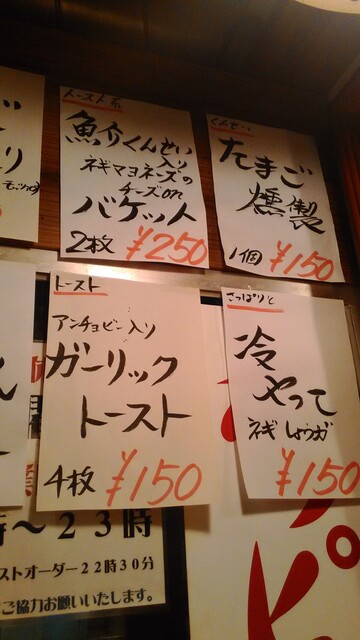 トースト系
魚介くんせい
入り
ネギマヨネーズの
チーズon
バケット
2枚 ¥250
くんせい
たまご
燻製
1個 ¥150
トースト
アンチョビー入り
ガーリック
トースト
4枚 ¥150
さっぱりと
冷
やって
ネギ しょうが
¥150
～23時
ストオーダー22時30分
ご協力お願いいたします。